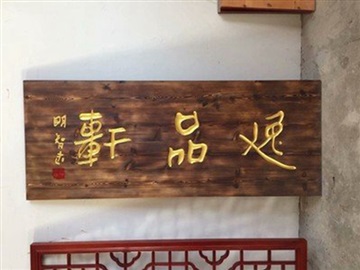 逸品軒
明智書